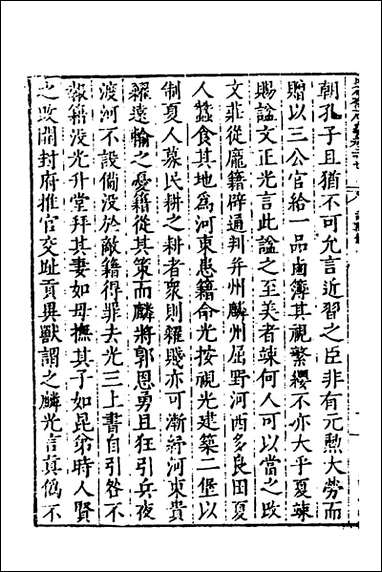 朝孔子且猶不可允言近習之臣非有元勲大勞而
贈以三公官給一品鹵簿其視繁纓不亦大乎夏竦
賜諡文正光言此諡之至美者竦何人可以當之改
文莊從龐籍辟通判并州麟州屈野河西多良田夏
人蠶食其地爲河東患籍命光按視光建築二堡以
制夏人募民耕之耕者衆則糴賤亦可漸紓河東貴
糴遠輸之憂籍從其策而麟將郭恩勇且狂引兵夜
渡河不設備没於敵籍得罪去光三上書自引咎不
報籍没光升堂拜其妻如母撫其子如昆弟時人賢
之改開封府推官交趾貢異獸謂之麟光言真僞不